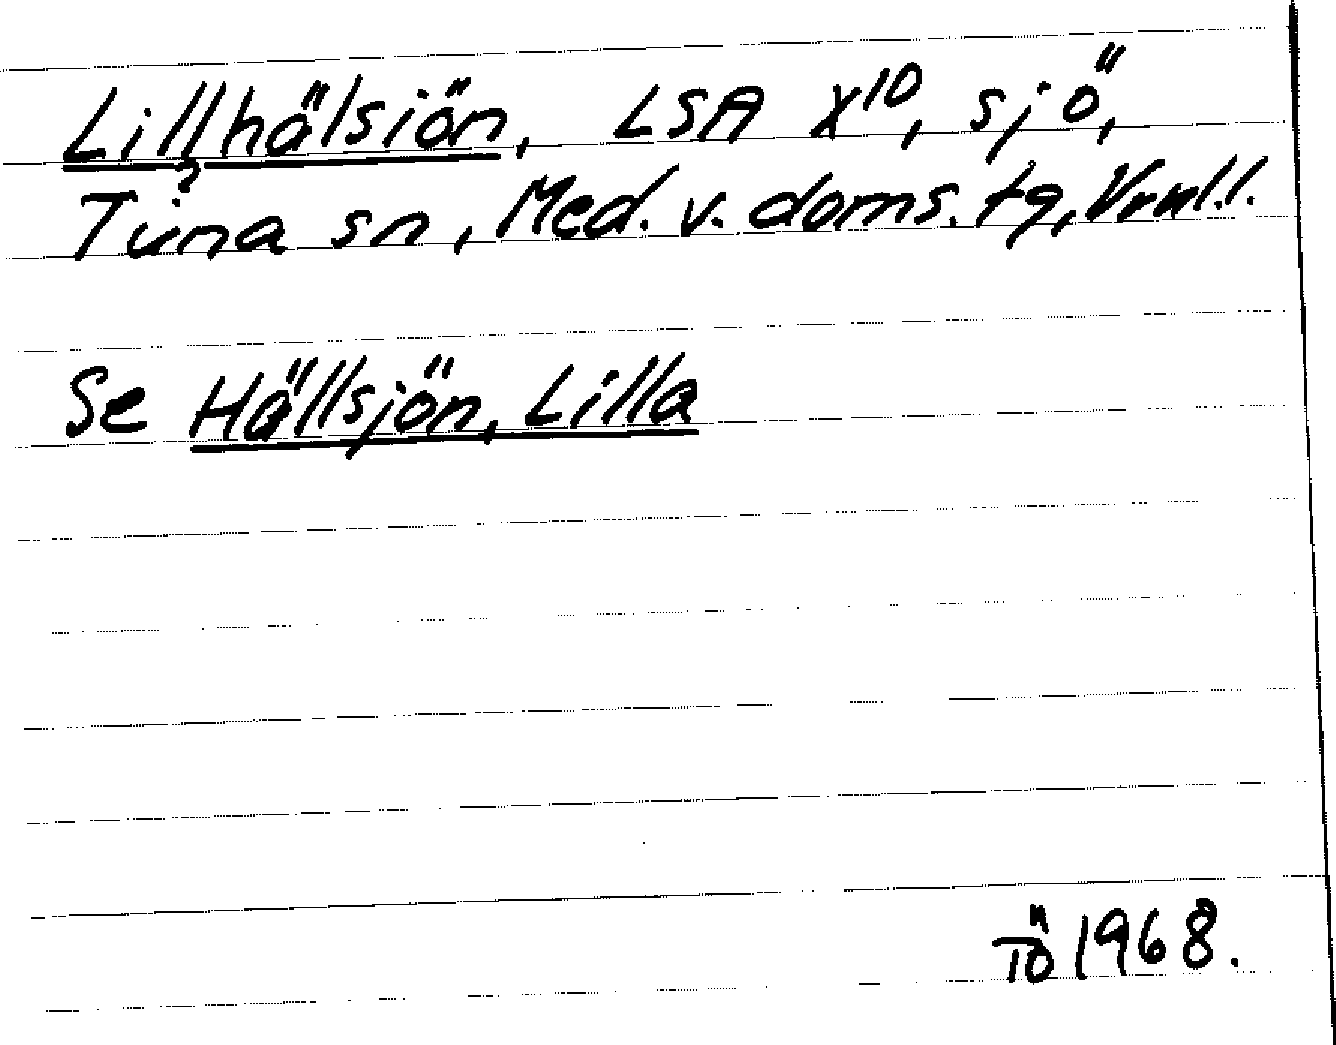 Lillhälsiön, LSA X10, sjö,
Tuna sn, Med. v. doms. tg, Vrml.l.
Se Hällsjön, Lilla
1968.